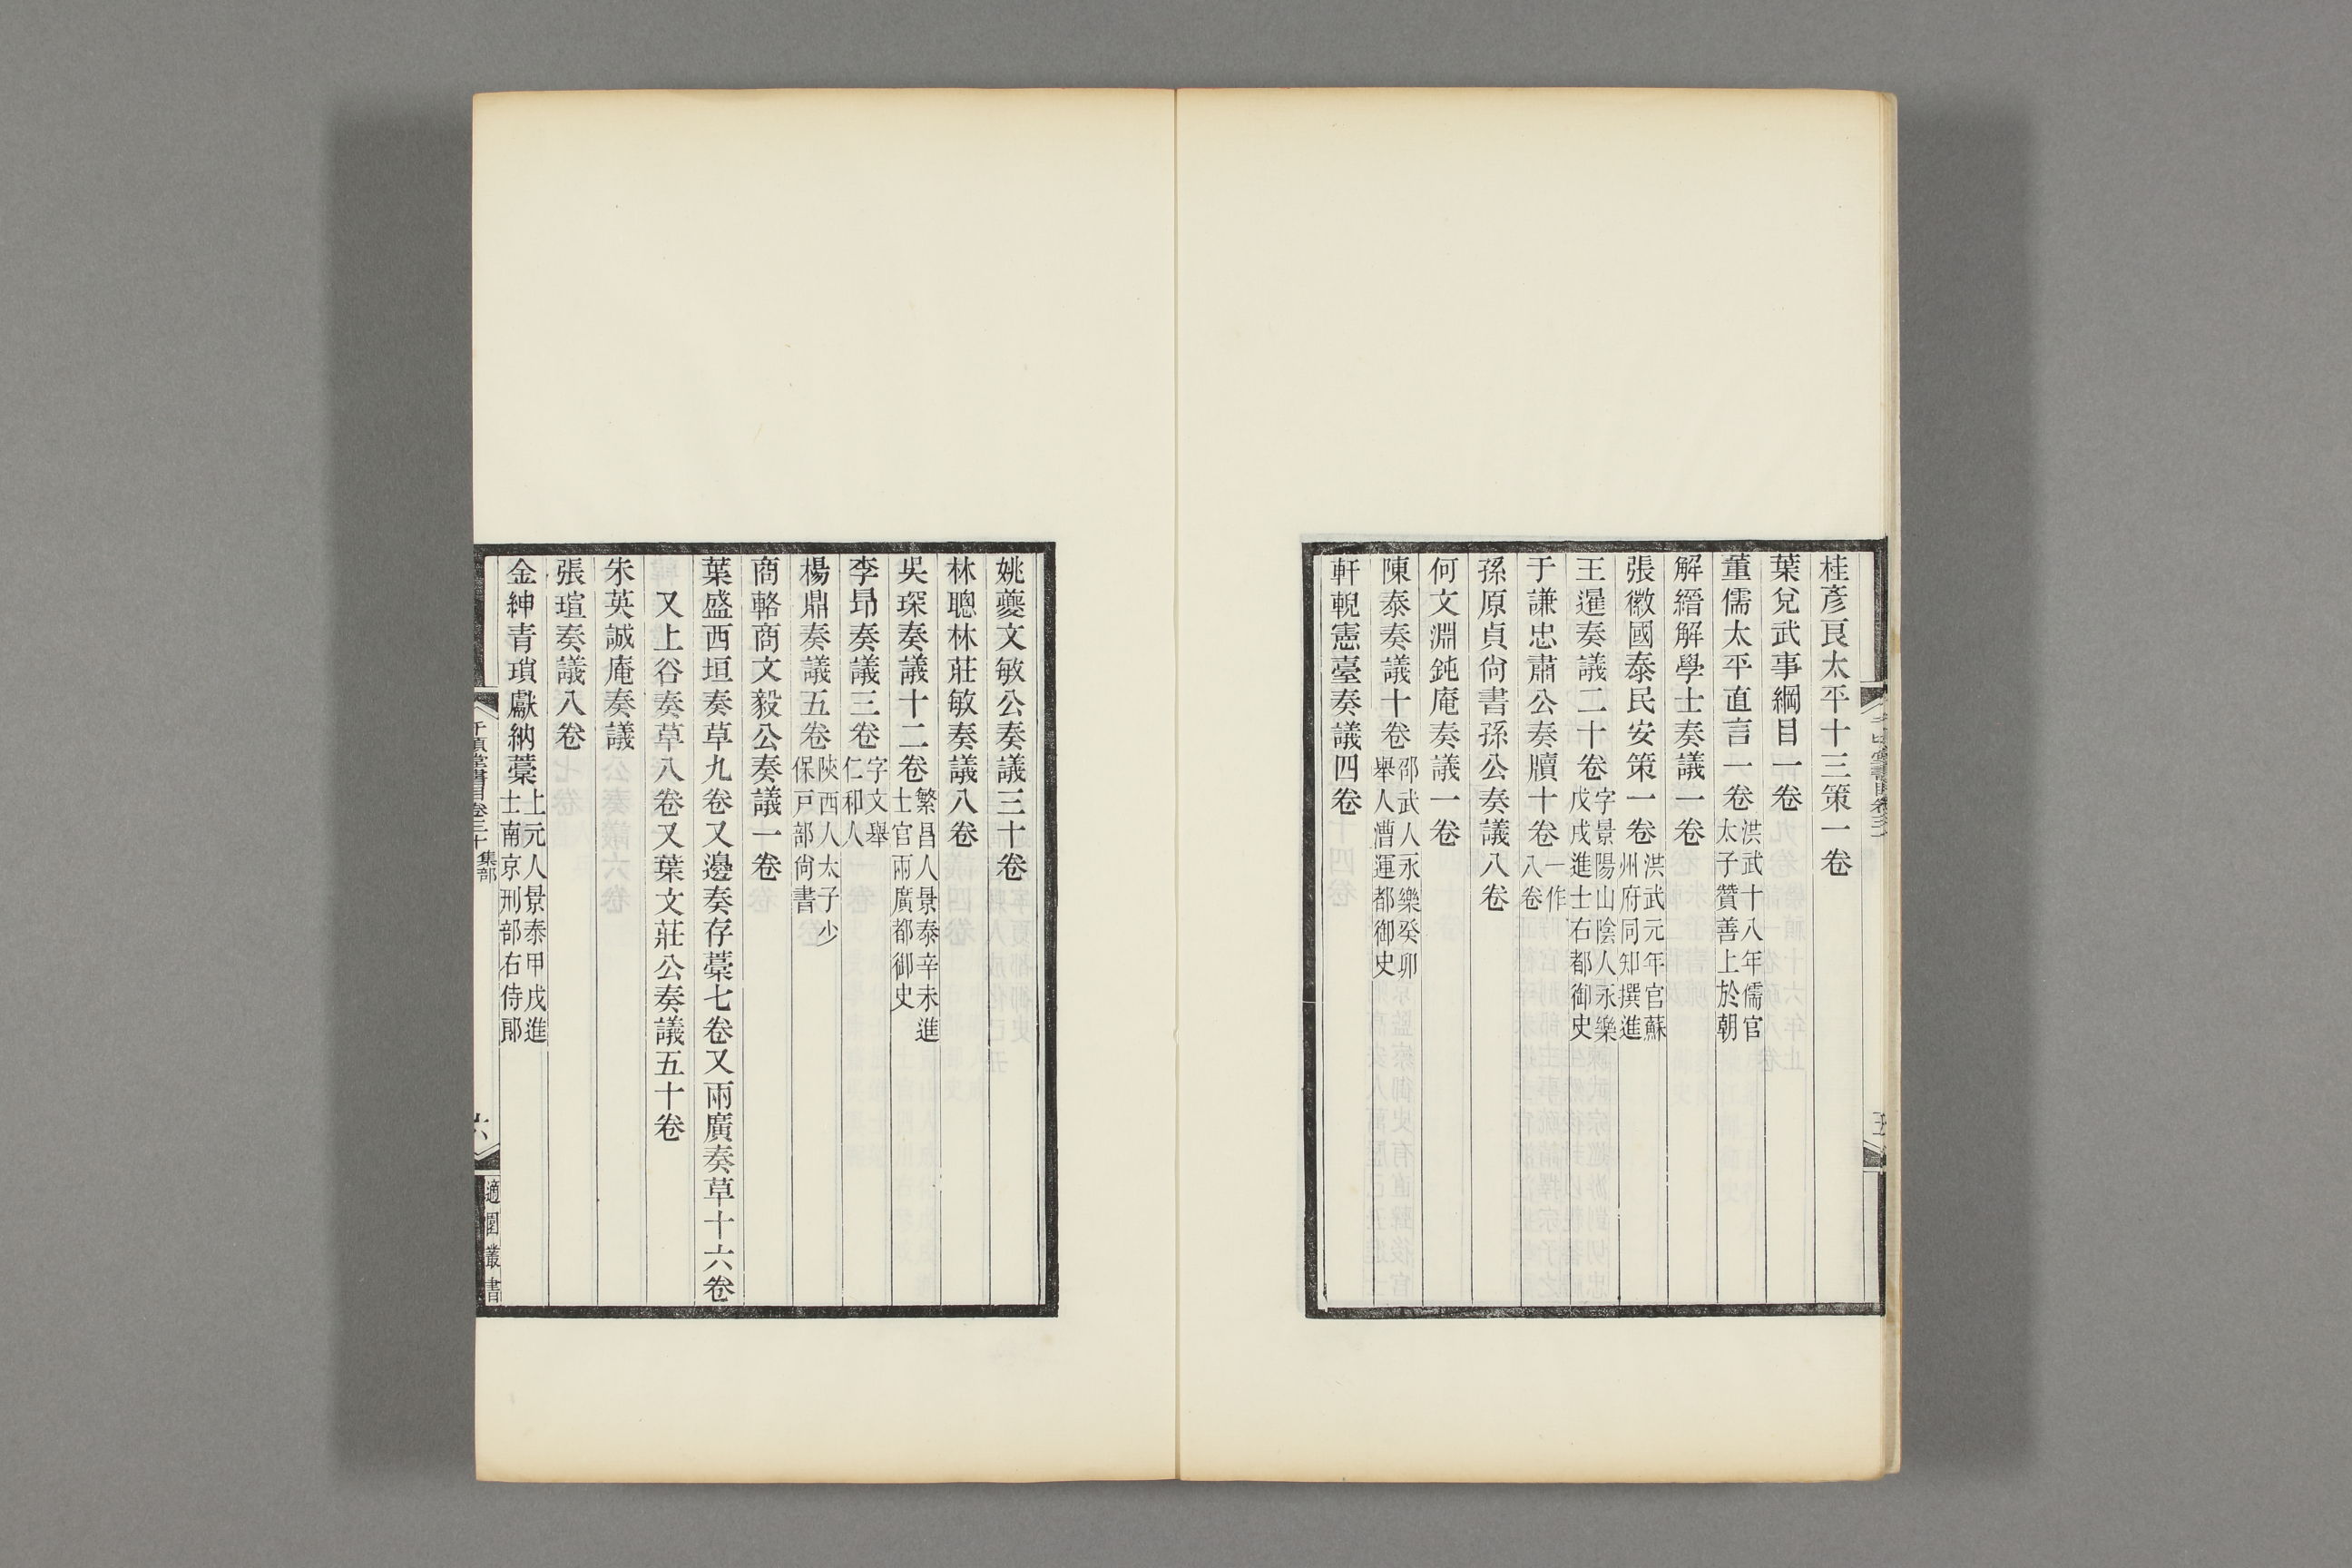 桂彥良太平十三策一卷
葉兌武事綱目一卷
董儒太平直言一卷洪武十八年儒官太子贊善上於朝
解縉解學士奏議一卷
張徽國泰民安策一卷洪武元年官蘇州府同知撰進
王暹奏議二十卷字景陽山陰人永樂戊戌進士右都御史
于謙忠肅公奏牘十卷一作八卷
孫原貞尙書孫公奏議八卷
何文淵鈍庵奏議一卷
陳泰奏議十卷邵武人永樂癸卯舉人漕運都御史
軒輗憲臺奏議四卷
姚夔文敏公奏議三十卷
林聰林莊敏奏議八卷
吳琛奏議十二卷繁昌人景泰辛未進士官兩廣都御史
李昻奏議三卷字文舉仁和人
楊鼎奏議五卷陝西人太子少保戶部尙書
商輅商文毅公奏議一卷
葉盛西垣奏草九卷又邊奏存藁七卷又兩廣奏草十六卷
又上谷奏草八卷又葉文莊公奏議五十卷
朱英誠庵奏議
張瑄奏議八卷
金紳青瑣獻納藁上元人景泰甲戌進士南京刑部右侍郞
千頃堂書目卷三十 集部
六
適園叢書